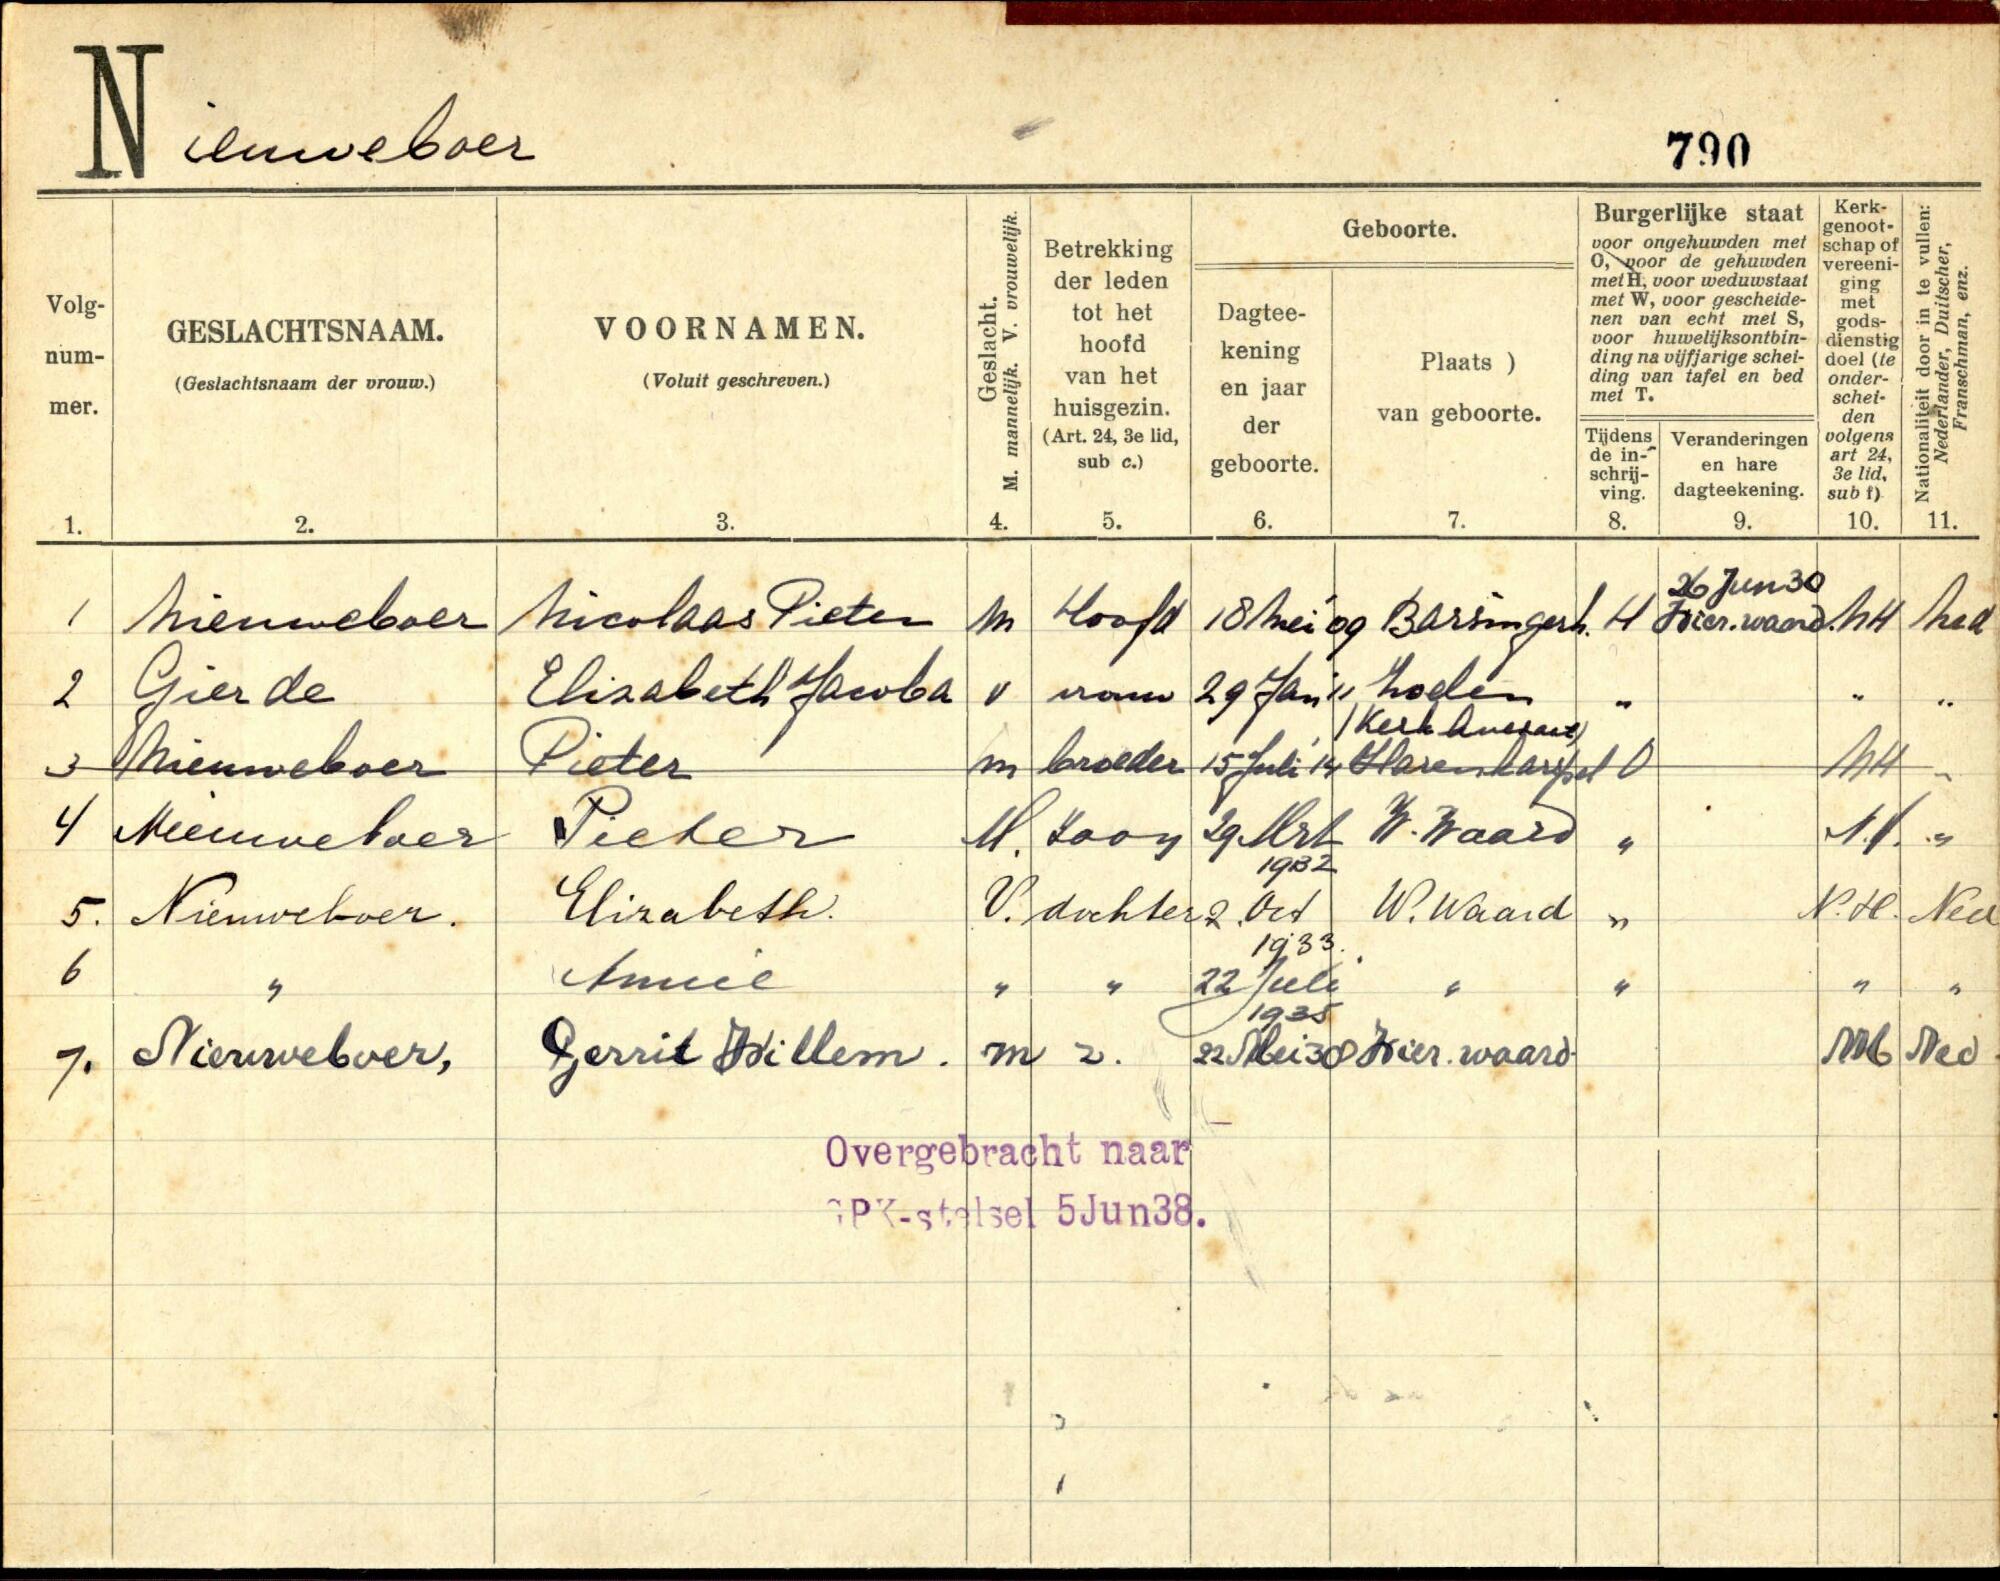 Nieuweboer
790
Volg-
num-
mer.
1.
GESLACHTSNAAM.
(Geslachtsnaam der vrouw.)
2.
VOORNAMEN.
(Voluit geschreven.)
3.
Geslacht.
M. mannelijk. V. vrouwelijk.
4.
Betrekking
der leden
tot het
hoofd
van het
huisgezin.
(Art. 24, 3e lid,
sub c.)
5.
Geboorte.
Dagtee-
kening
en jaar
der
geboorte.
6.
Plaats )
van geboorte.
7.
Burgerlijke staat
voor ongehuwden met
O, voor de gehuwden
met H, voor weduwstaat
met W, voor gescheide-
nen van echt met S,
voor huwelijksontbin-
ding na vijfjarige schei-
ding van tafel en bed
met T.
Tijdens
de in-
schrij-
ving.
8.
Veranderingen
en hare
dagteekening.
9.
Kerk-
genoot-
schap of
vereeni-
ging
met
gods-
dienstig
doel (te
onder-
schei-
den
volgens
art 24,
3e lid,
sub f)
10.
Nationaliteit door in te vullen:
Nederlander, Duitscher,
Franschman, enz.
11.
26 Jun 30
1 Nieuweboer Nicolaas Pieter M Hoofd 18 Mei 09 Barsingerh. H Wier.waard. NH Ned
2 Gier de Elizabeth Jacoba v vrouw 29 Jan 11 " " "
3 Nieuweboer Pieter m broeder 15 Juli 14 Harenkarspel O NH "
4 Nieuweboer Pieter M. zoon 29 Mrt W. Waard " N.H. "
1932
5. Nieuweboer. Elizabeth. V. dochter 2 Oct W. Waard " N.H. Ned
1933.
6 " Annie " " 22 Juli " " " "
1935
7. Nieuweboer, Gerrit Willem. m z. 22 Mei 38 Wier.waard NH Ned
Overgebracht naar
GPK-stelsel 5Jun38.